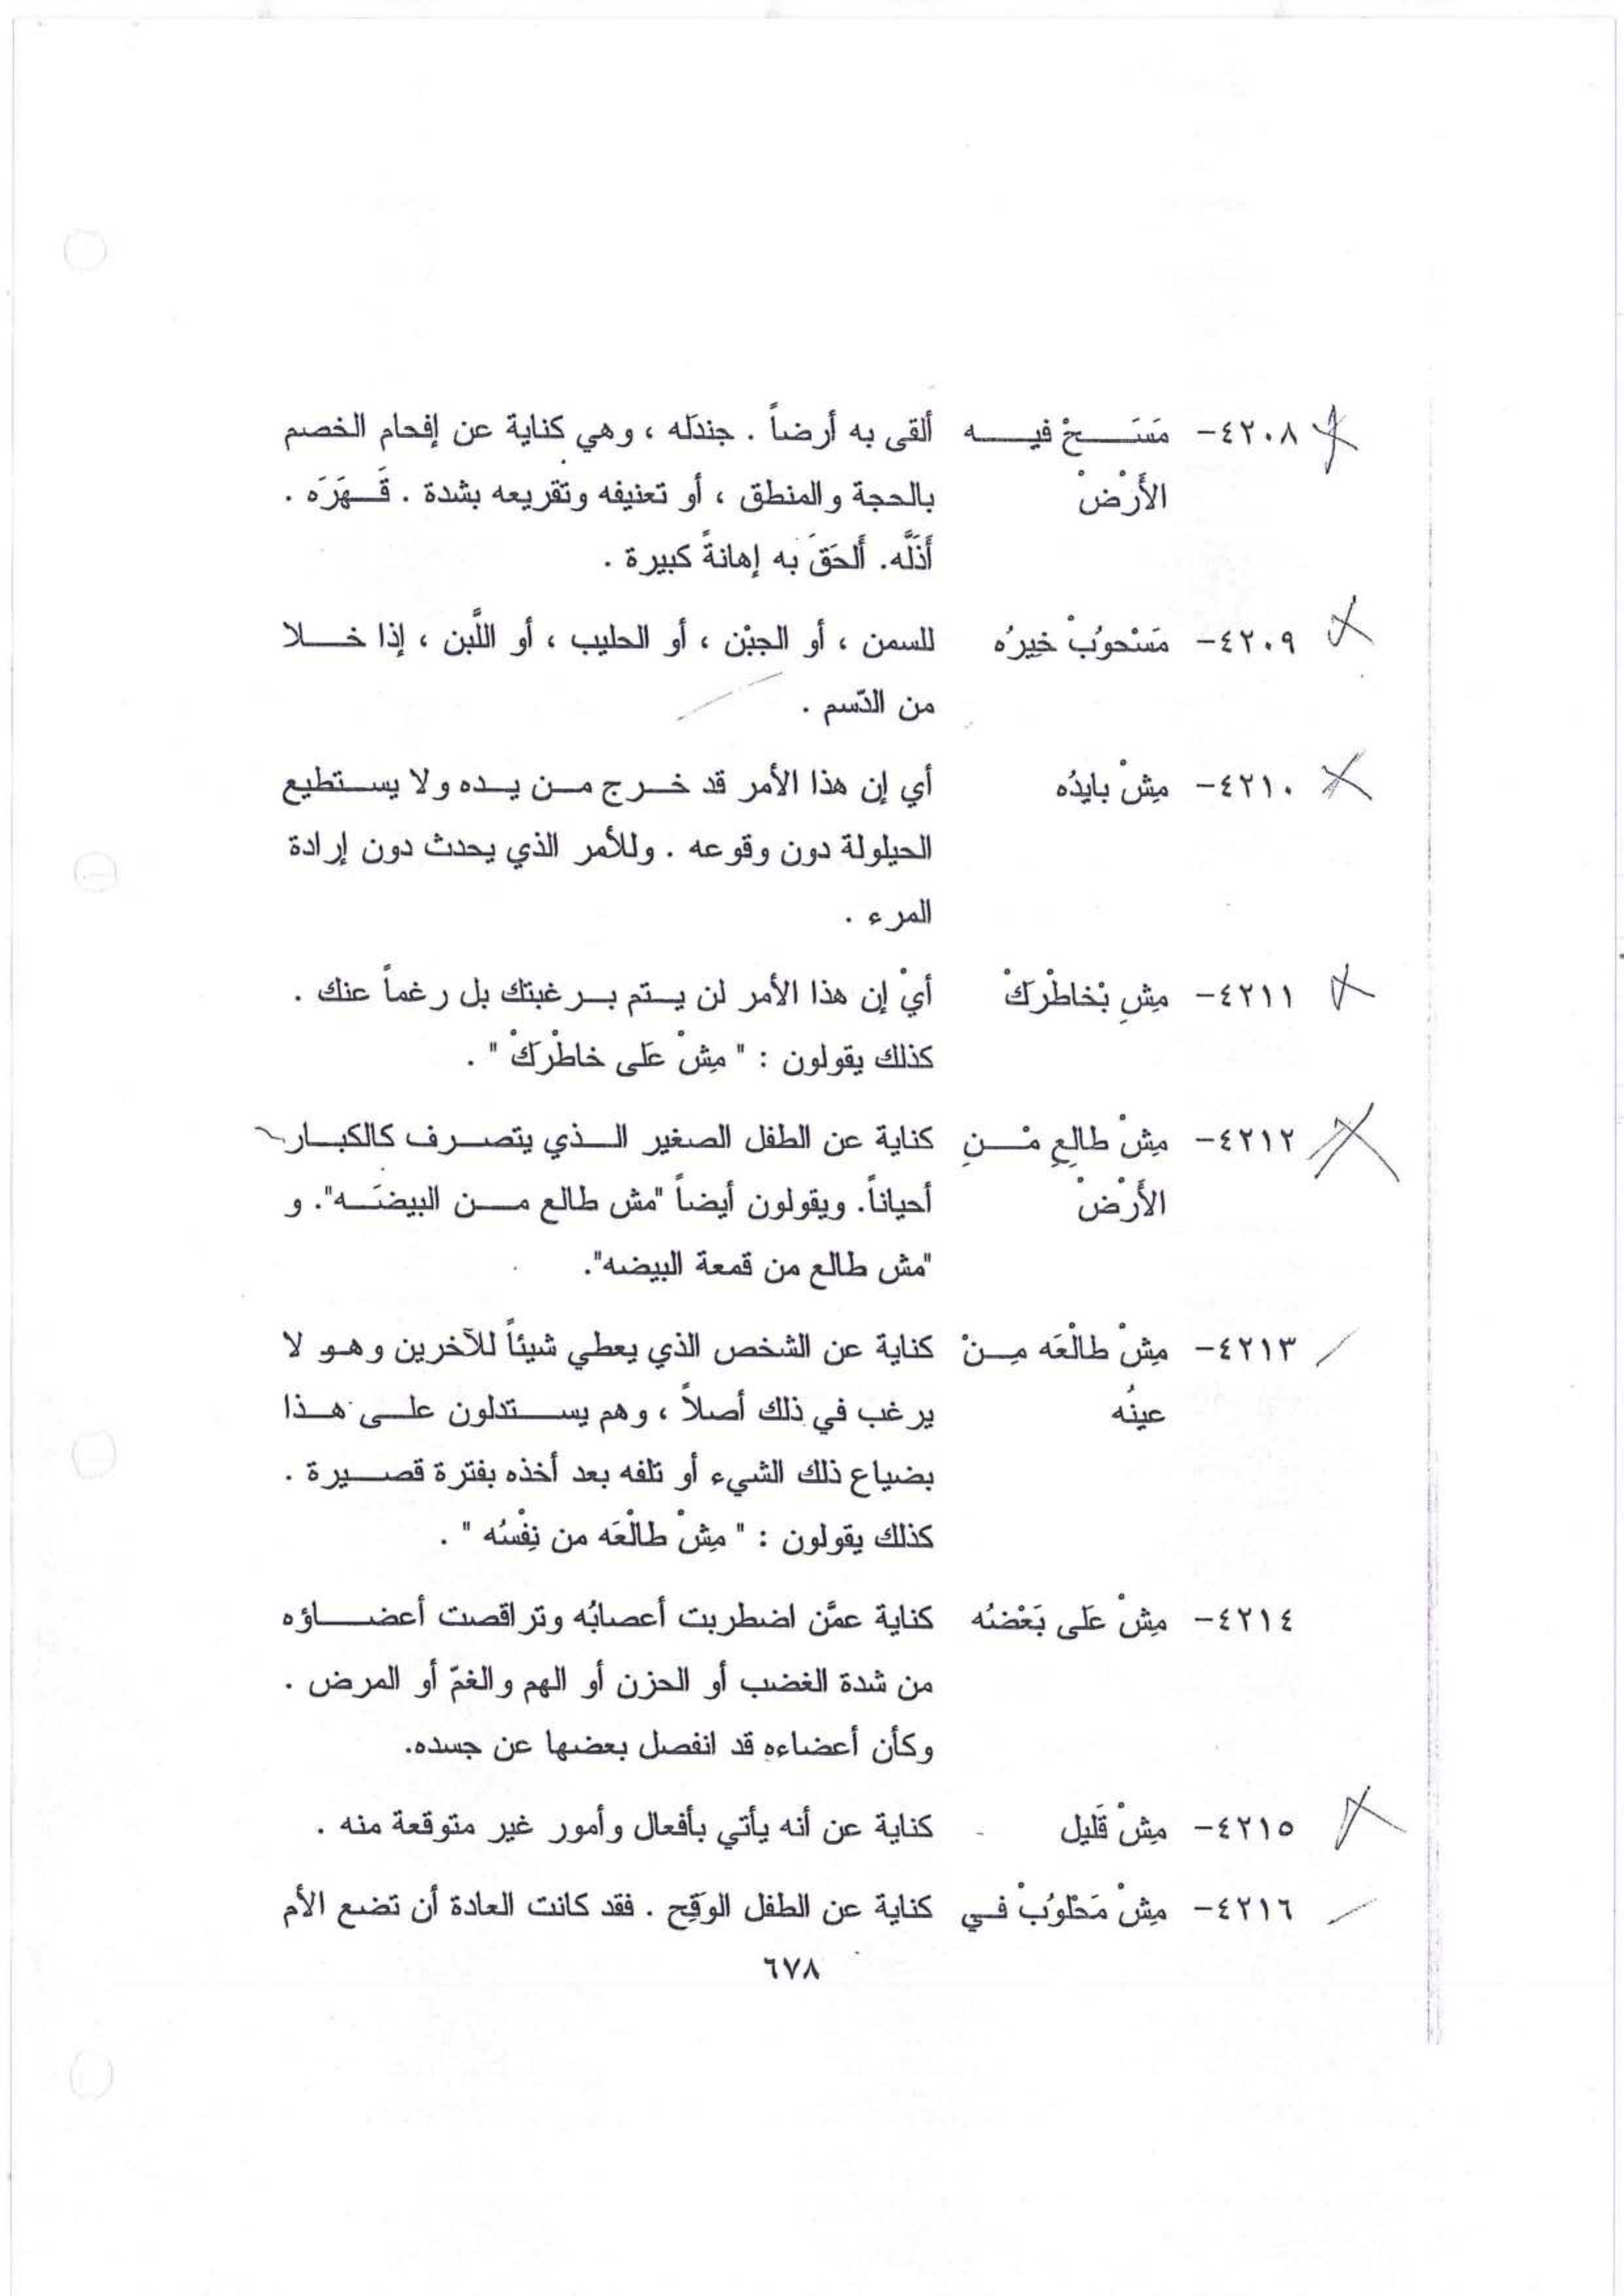 ٤٢٠٨- مَسَـحْ فيـه ألقى به أرضاً . جندَله ، وهي كناية عن إفحام الخصم
الأَرْضْ بالحجة والمنطق ، أو تعنيفه وتقريعه بشدة . قَـهَرَه .
أَذَلَّه. أَلحَقَ به إهانةً كبيرة .
٤٢٠٩- مَسْحوُبْ خيرُه للسمن ، أو الجبْن ، أو الحليب ، أو اللَّبن ، إذا خـلا
من الدّسم .
٤٢١٠- مِشْ بايدُه أي إن هذا الأمر قد خـرج مـن يـده ولا يسـتطيع
الحيلولة دون وقوعه . وللأمر الذي يحدث دون إرادة
المرء .
٤٢١١- مِشِ بْخاطْرَكْ أيْ إن هذا الأمر لن يـتم بـرغبتك بل رغماً عنك .
كذلك يقولون : " مِشْ عَلى خاطْرَكْ " .
٤٢١٢- مِشْ طالِعِ مْـنِ كناية عن الطفل الصغير الـذي يتصـرف كالكبـار
الأَرْضْ أحياناً. ويقولون أيضاً "مش طالع مـن البيضَـه". و
"مش طالع من قمعة البيضه".
٤٢١٣- مِشْ طالْعَه مِـنْ كناية عن الشخص الذي يعطي شيئاً للآخرين وهـو لا
عينُه يرغب في ذلك أصلاً ، وهم يسـتدلون علـى هـذا
بضياع ذلك الشيء أو تلفه بعد أخذه بفترة قصـيرة .
كذلك يقولون : " مِشْ طالْعَه من نِفْسُه " .
٤٢١٤- مِشْ عَلى بَعْضُه كناية عمَّن اضطربت أعصابُه وتراقصت أعضـاؤه
من شدة الغضب أو الحزن أو الهم والغمّ أو المرض .
وكأن أعضاءه قد انفصل بعضها عن جسده.
٤٢١٥- مِشْ قَليل كناية عن أنه يأتي بأفعال وأمور غير متوقعة منه .
٤٢١٦- مِشْ مَحْلوُبْ فـي كناية عن الطفل الوَقِح . فقد كانت العادة أن تضع الأم
٦٧٨